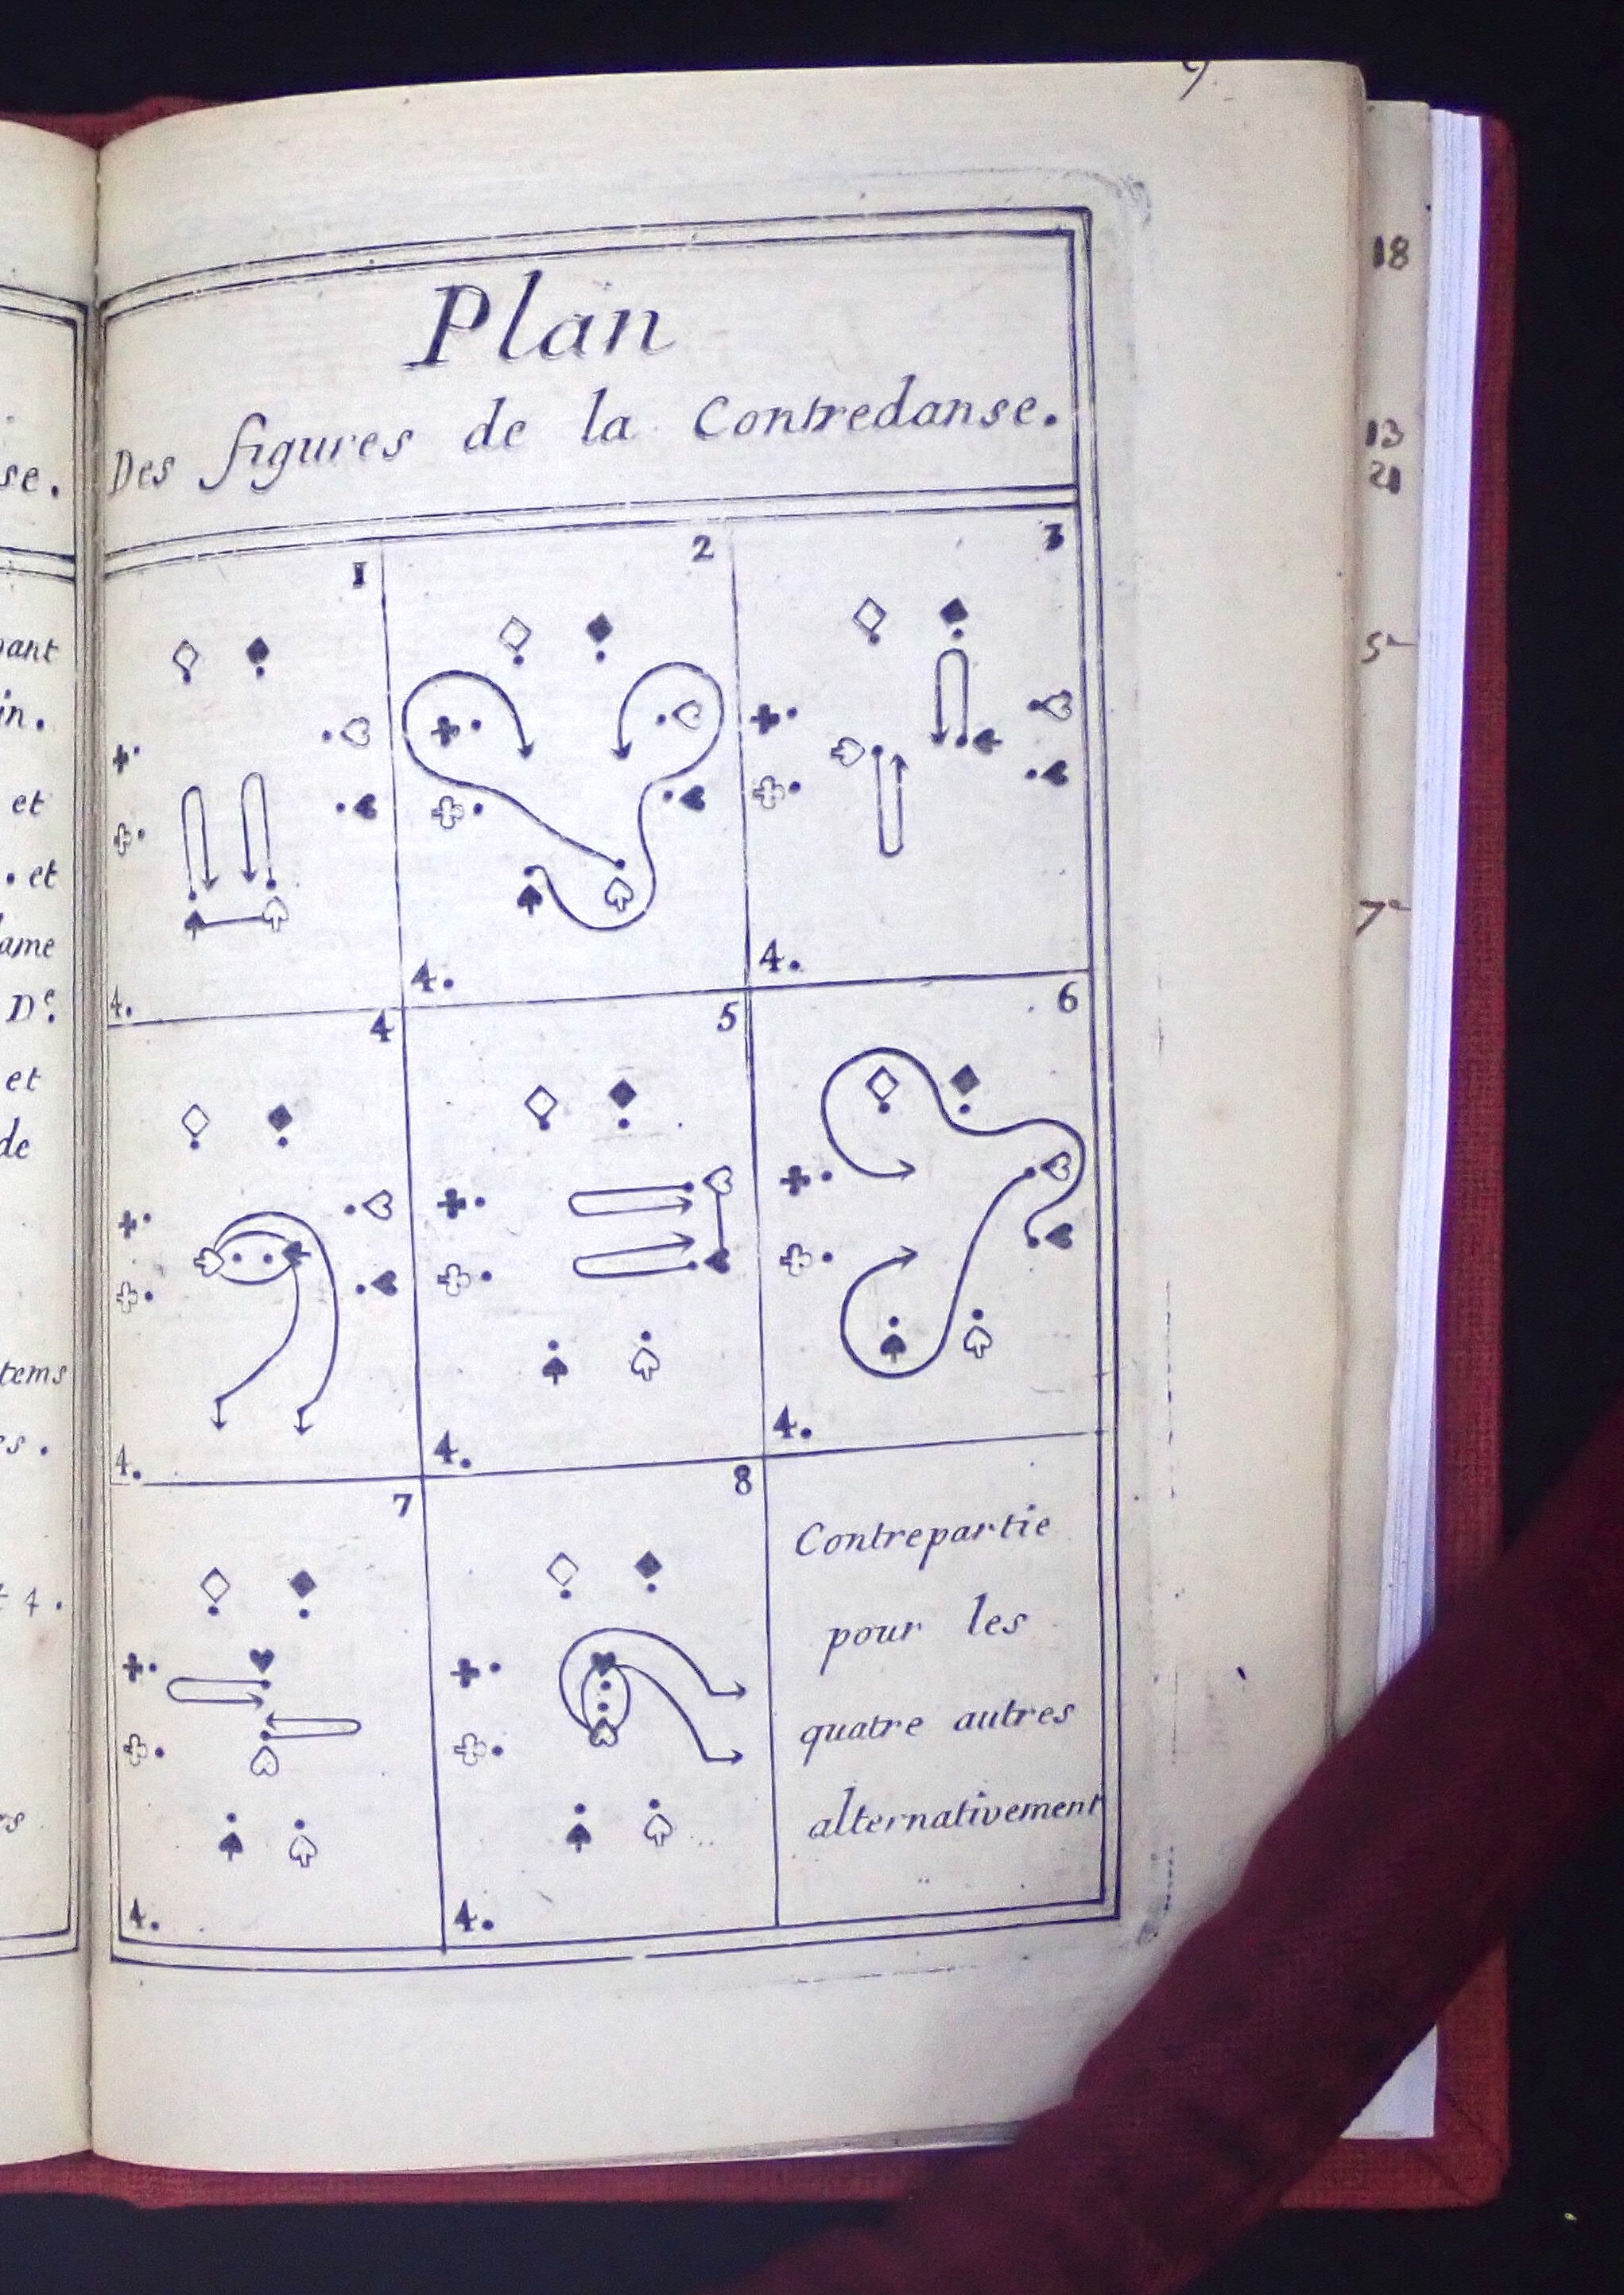 9.
Plan
Des figures de la Contredanse.
1
2
3
4.
4.
4.
4
5
6
4.
4.
4.
7
8
4.
4.
Contrepartie
pour les
quatre autres
alternativement
se.
in.
et
. et
ame
De.
et
de
tems
4.
18
13
21